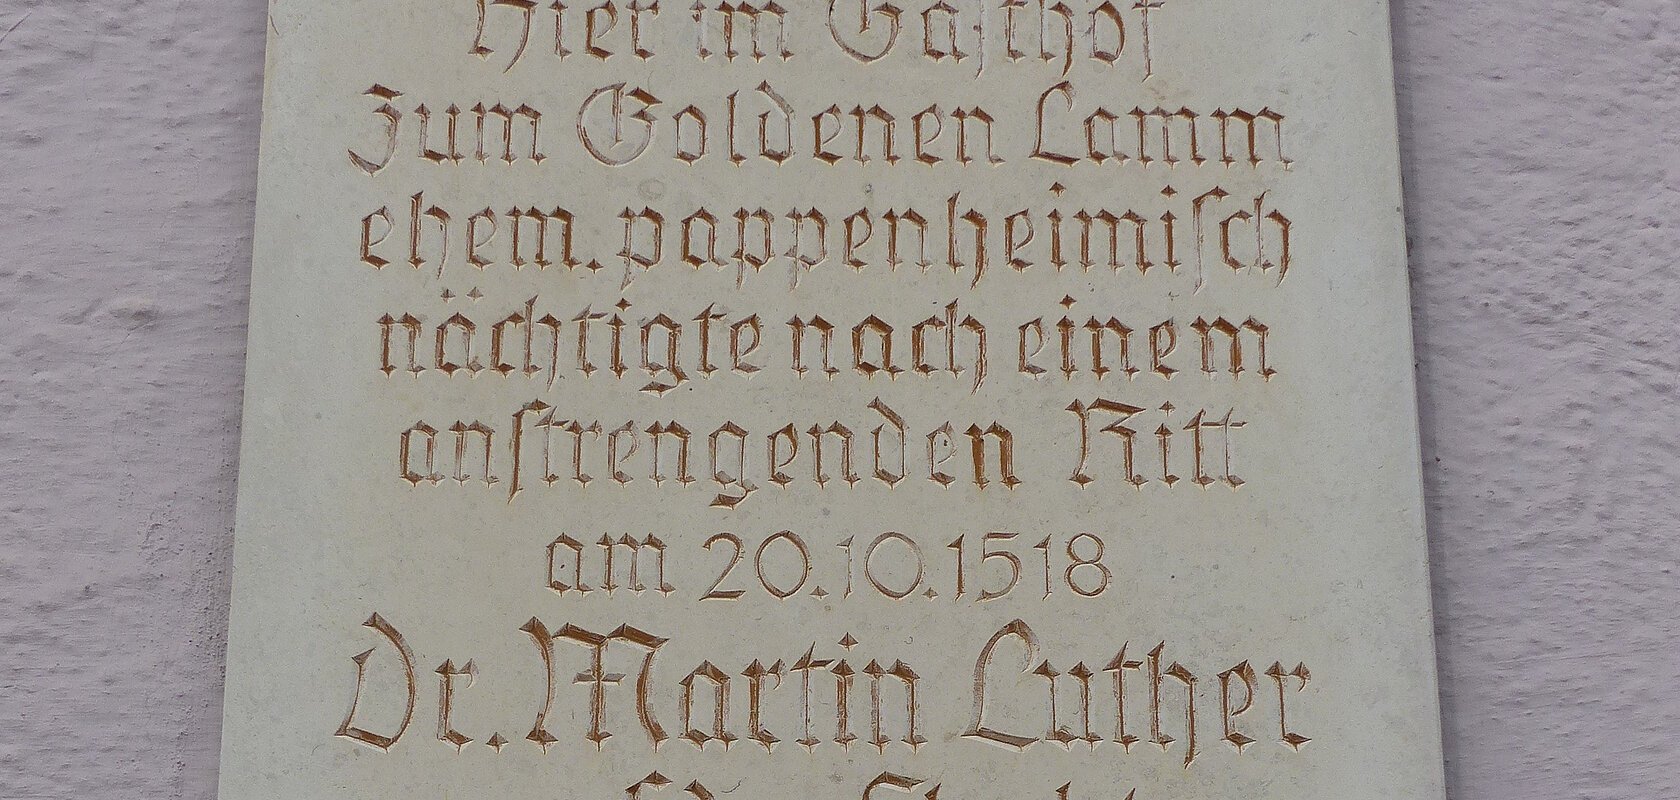 Hier im Gaſthof
zum Goldenen Lamm
ehem. pappenheimiſch
nächtigte nach einem
anſtrengenden Ritt
am 20.10.1518
Dr. Martin Luther